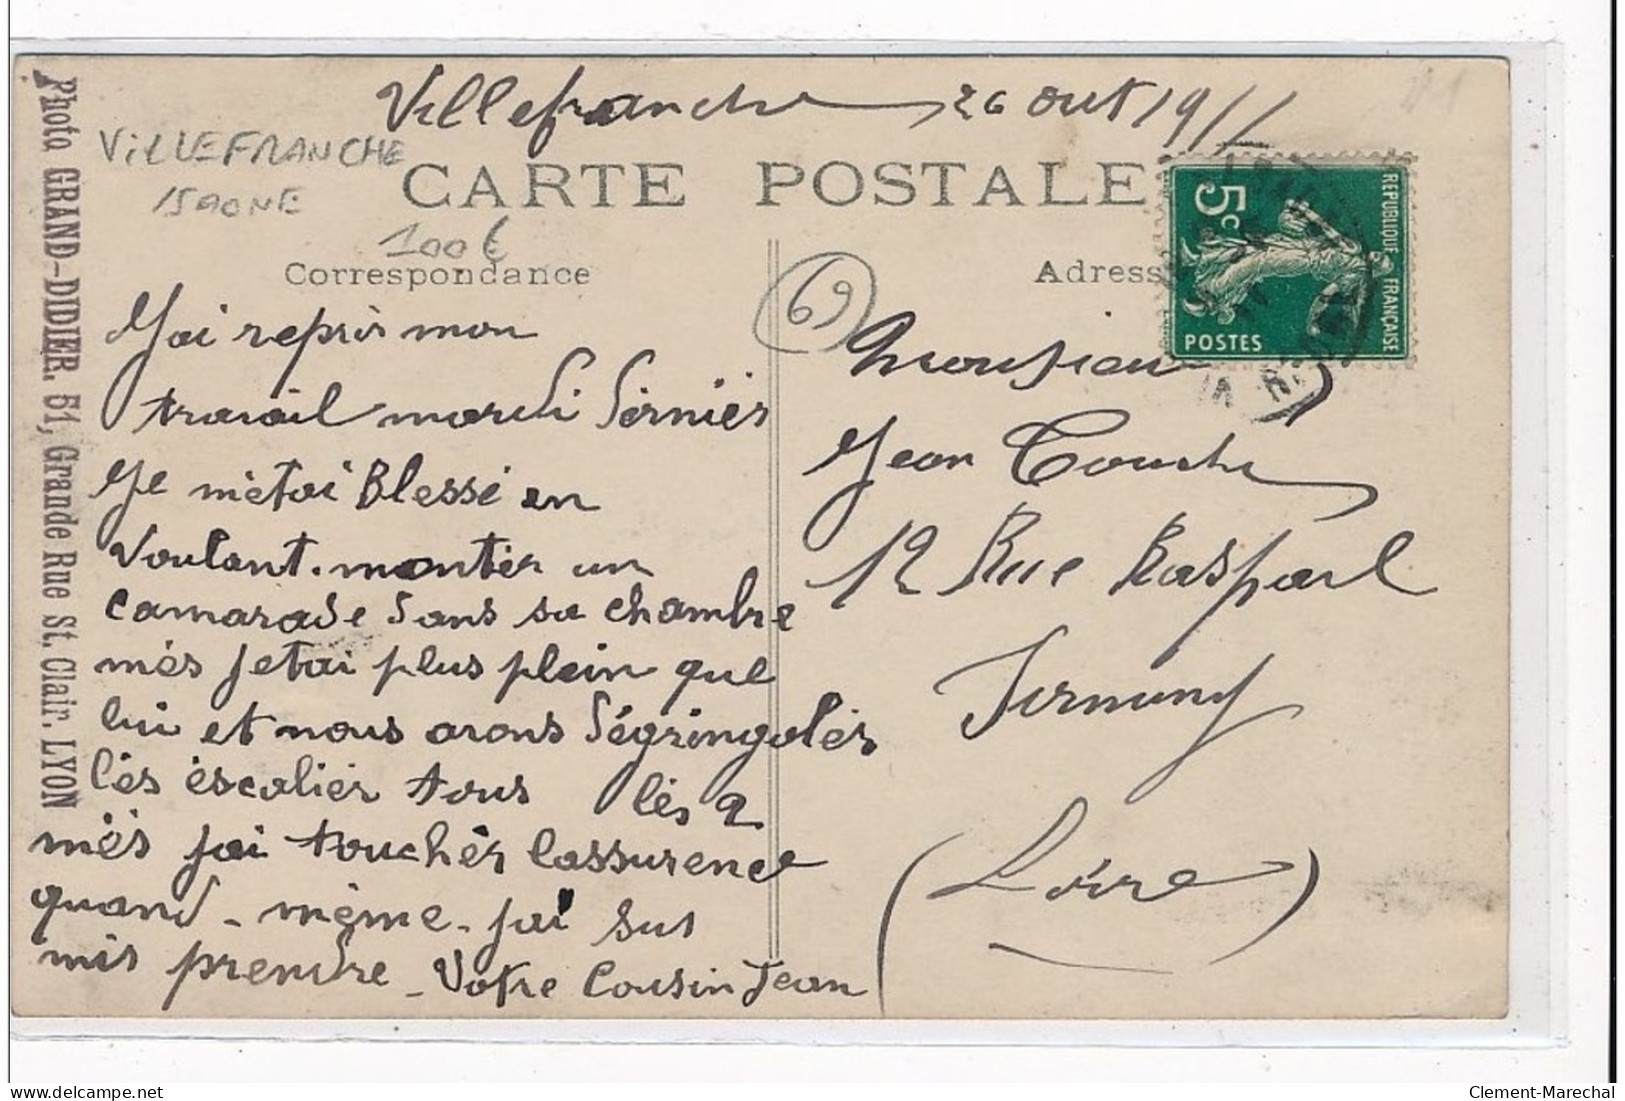 Villefranche 26 Out 1911
VILLEFRANCHE
/SAONE
CARTE POSTALE
100€
Correspondance
Adress
69
RÉPUBLIQUE FRANÇAISE
5c
POSTES
Photo GRAND-DIDIER. 51, Grande Rue St. Clair. LYON
J'ai repris mon
travail mardi dernièr
Je mètai Blessé en
Voulant montér un
Camarade dans sa chambre
mès jetai plus plein que
lui et nous avons dégringolér
lès èscalièr tous lès 2
mès jai touchér lassurence
quand-même jai sus
mis prendre - Votre Cousin Jean
Monsieur
Jean
12 Rue Raspail
Firminy
(Loire)
Clement-Marechal